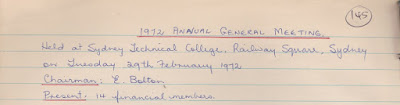 145
1972 ANNUAL GENERAL MEETING.
Held at Sydney Technical College, Railway Square, Sydney
on Tuesday 29th February 1972
Chairman: E. Bolton
Present: 14 financial members.